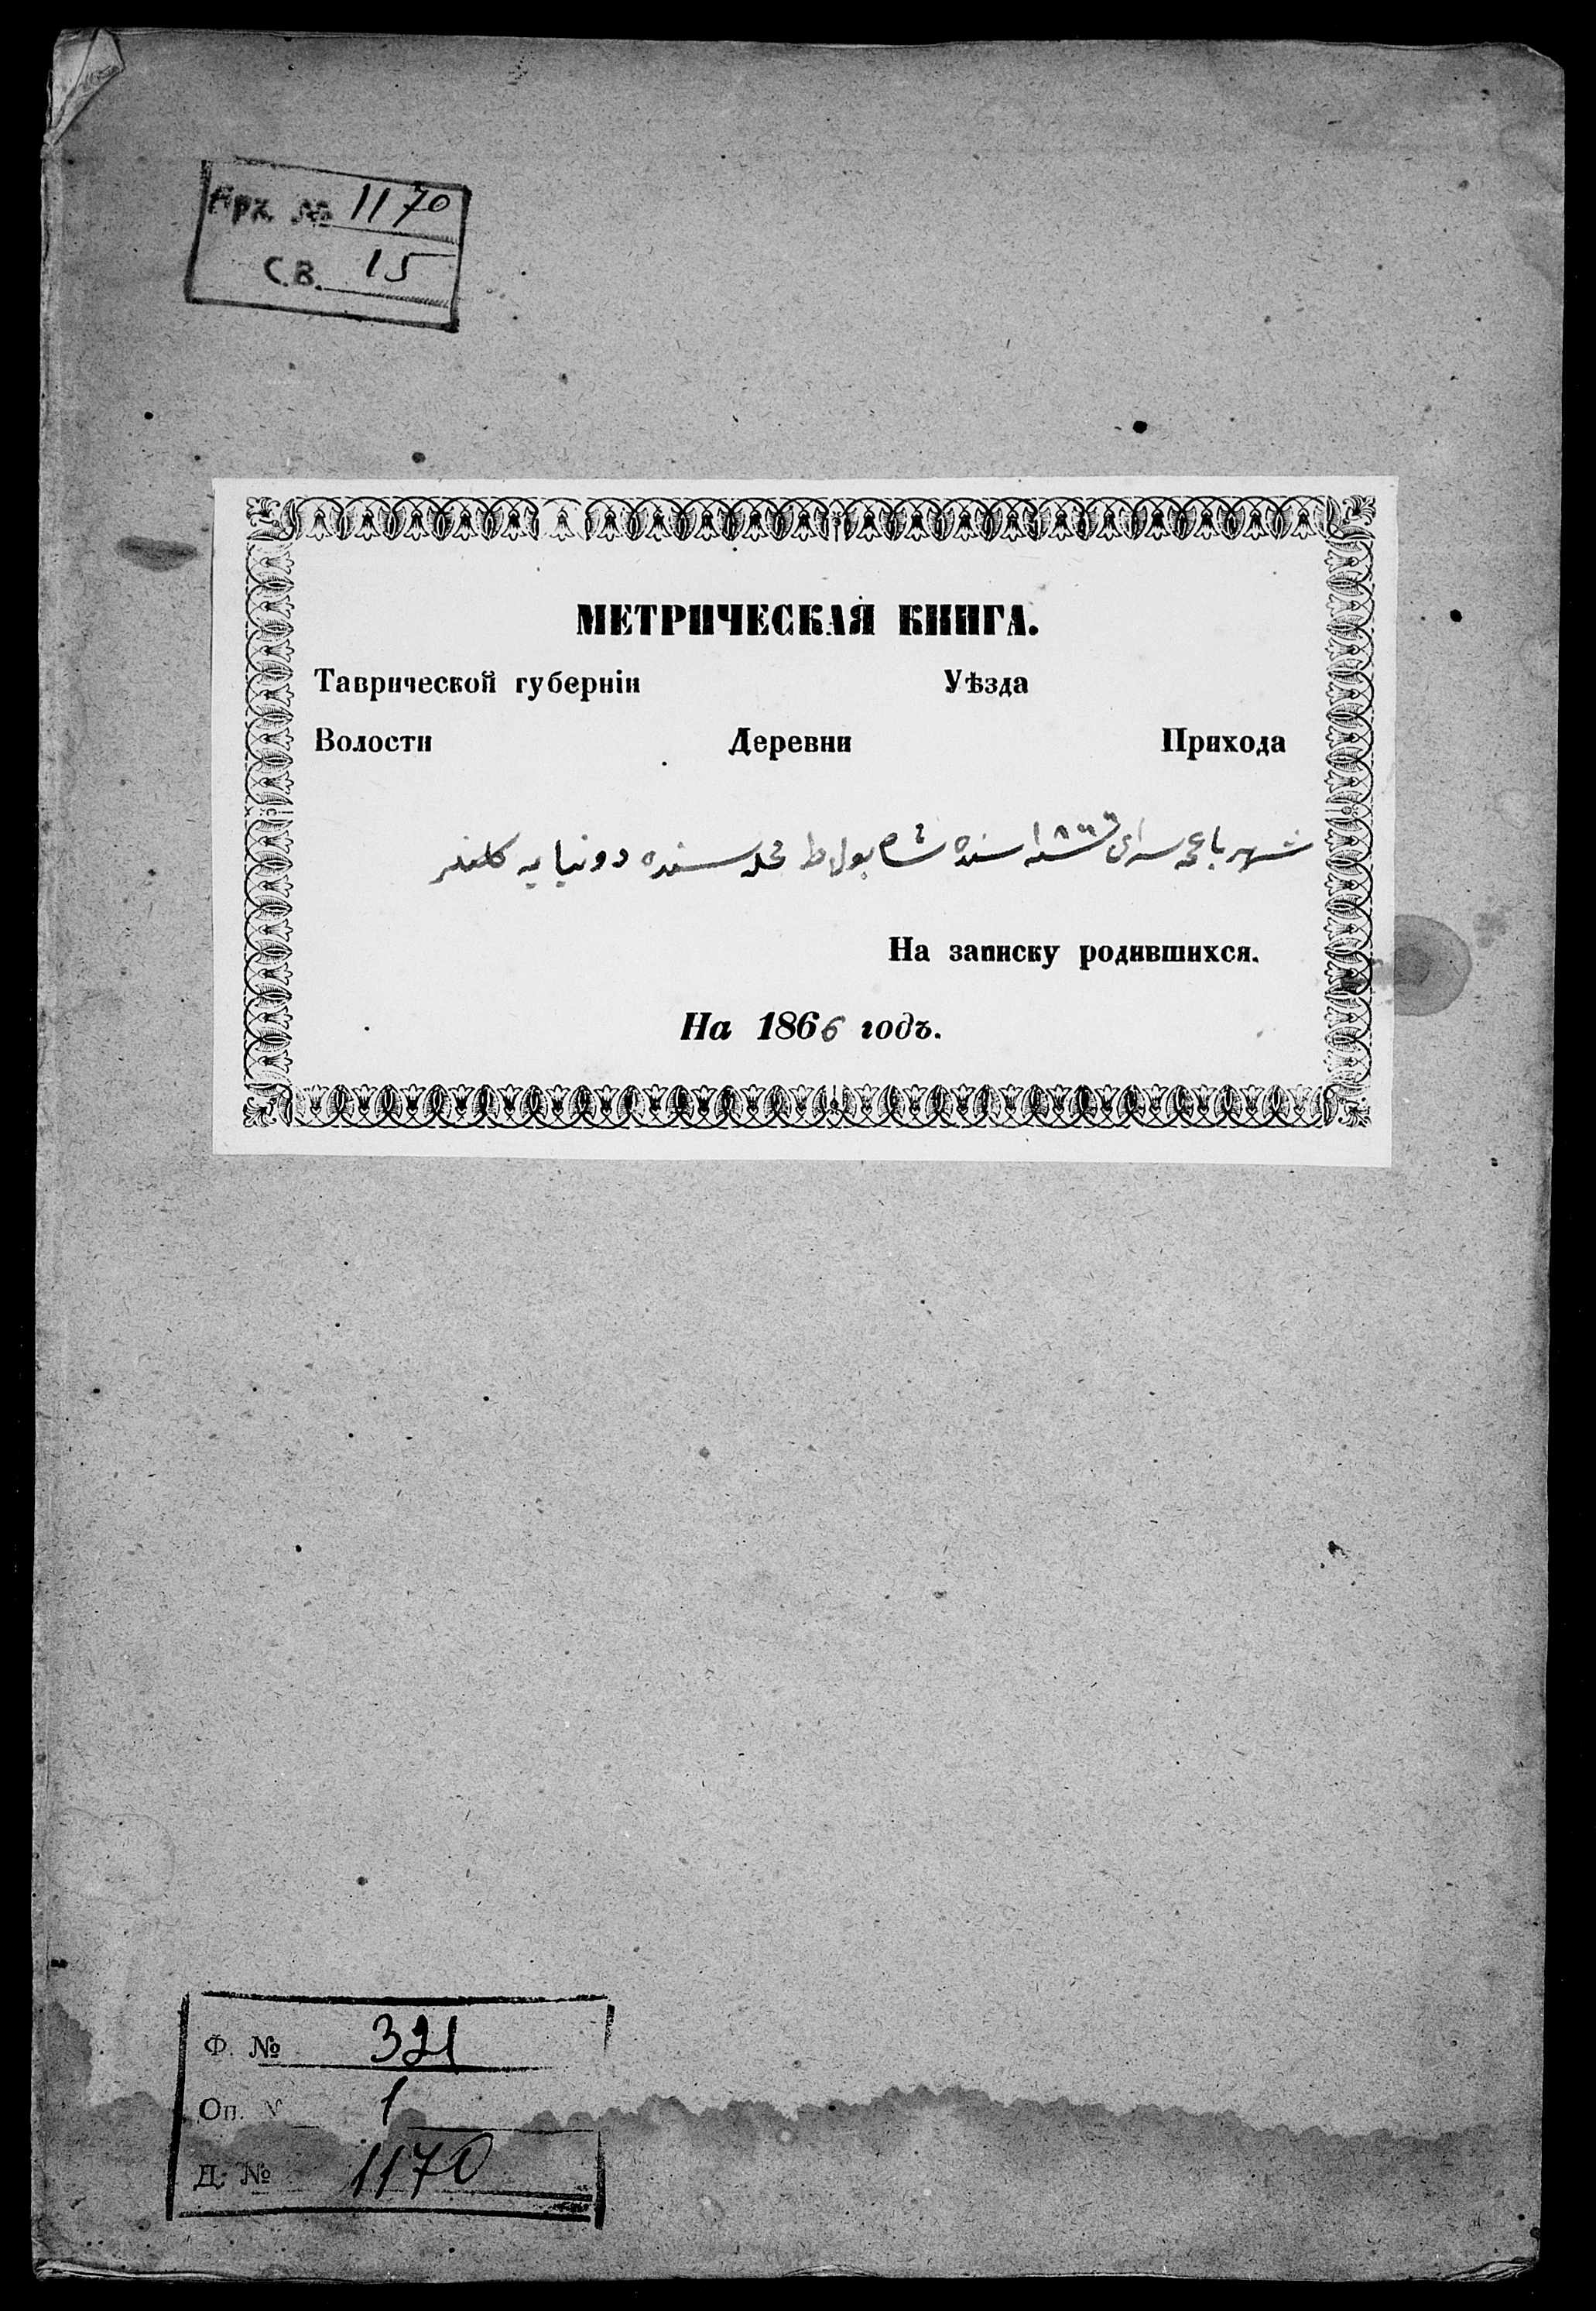 Арх. № 1170
С.В. 15
МЕТРИЧЕСКАЯ КНИГА.
Таврической губернiи Уѣзда
Волости Деревни Прихода
شهر باغچه سرای سنده شاه بولاط محله سنده دونیایه کلنلر
На записку родившихся.
На 1866 годъ.
Ф. № 321
Оп. № 1
Д. № 1170